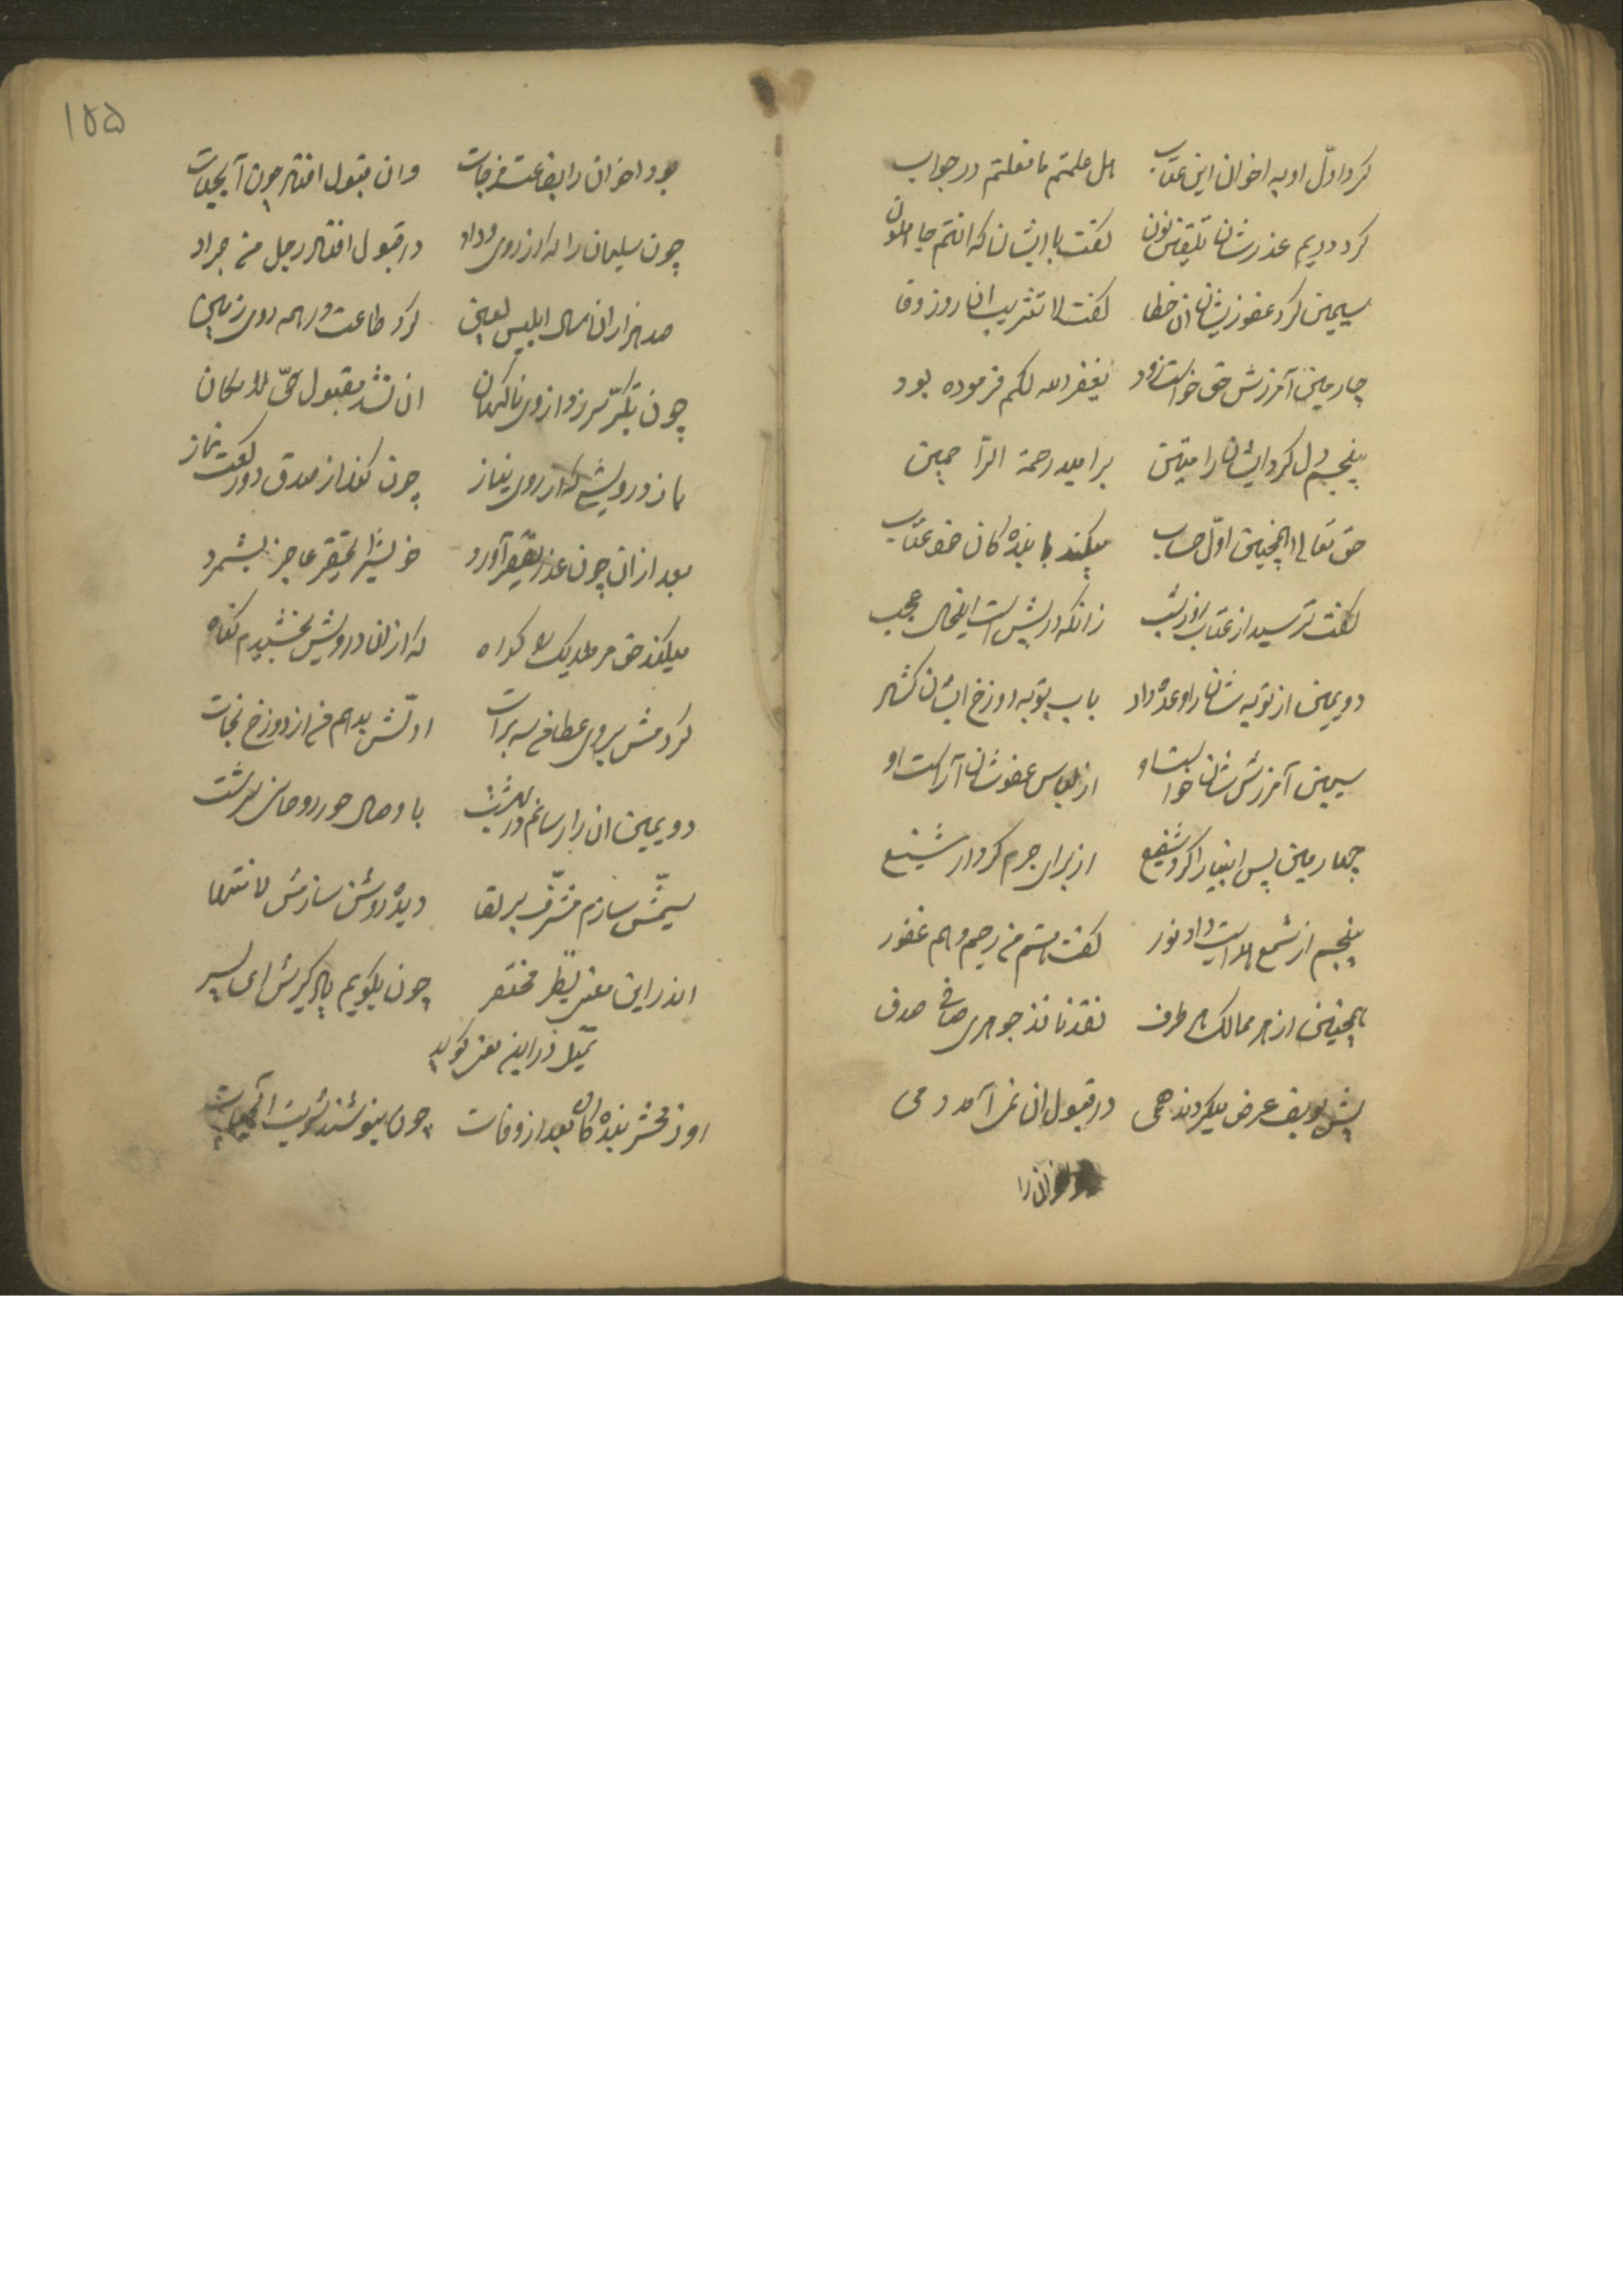 کرد اوّل او به اخوان این عتاب هل علمتم ما فعلتم در جواب
کرد دویم عذرشان تلقین نون گفت با ایشان که انتم جاهلون
سیمین کرد عفو زیشان آن خطا گفت لا تثریب آن روز وفا
چارمین آمرزش حق خواست زود یغفر الله لکم فرموده بود
پنجم دل کرد ایشان را متین بر امید رحمة الرّاحمین
حق تعالی همچنین اوّل حساب میکند با بنده کان خود عتاب
گفت ترسید از عتاب روز شب زانکه در پیش است اینحال عجب
دویمین از توبه شان را وعده داد باب توبه دوزخ ایشان کشاد
سیمین آمرزش شان خواست او از لباس عفوشان آراست او
چهارمین پس انبیا را کرد شفیع از برای جرم کردار شنیع
پنجم از شمع هدایت داد نور گفت هستم من رحیم و هم غفور
همچنین از هر ممالک هر طرف نقد نافذ جوهری صافی صدف
پیش یوسف عرض میکردند همی در قبول آن نمی آمد دمی
اخوان را
۱۵۵
بود اخوان را بضاعت مزجات وان قبول افتاد چون آبحیات
چون سلیمان را که از روی وداد در قبول افتاد رجل من جراد
صد هزاران سال ابلیس لعین کرد طاعت در همه روی زمین
چون تکبّر سر زد از وی ناکهان آن نشد مقبول حیّ لامکان
باز درویشی که از روی نیاز چون کند از صدق دو رکعت نماز
بعد از آن چون عذر تقصیر آورد خویش را حقیر عاجز بشمرد
میکند حق مر ملایک را کواه که از آن درویش بخشیدم کناه
کردمش بروی عطا من سه برات اوّلش بدهم من از دوزخ نجات
دویمین آن را رسانم در بهشت با وصال حور روحانی سرشت
سیمّش سازم مشرّف بر لقا دیده روشن سازمش لا منتها
اندر این معنی بنظر مختصر چون بکویم یاد کیرش ای پسر
تمثیل در این معنی کوید
روز محشر بنده کان بعد از وفات چون بنوشند شربت آبحیات